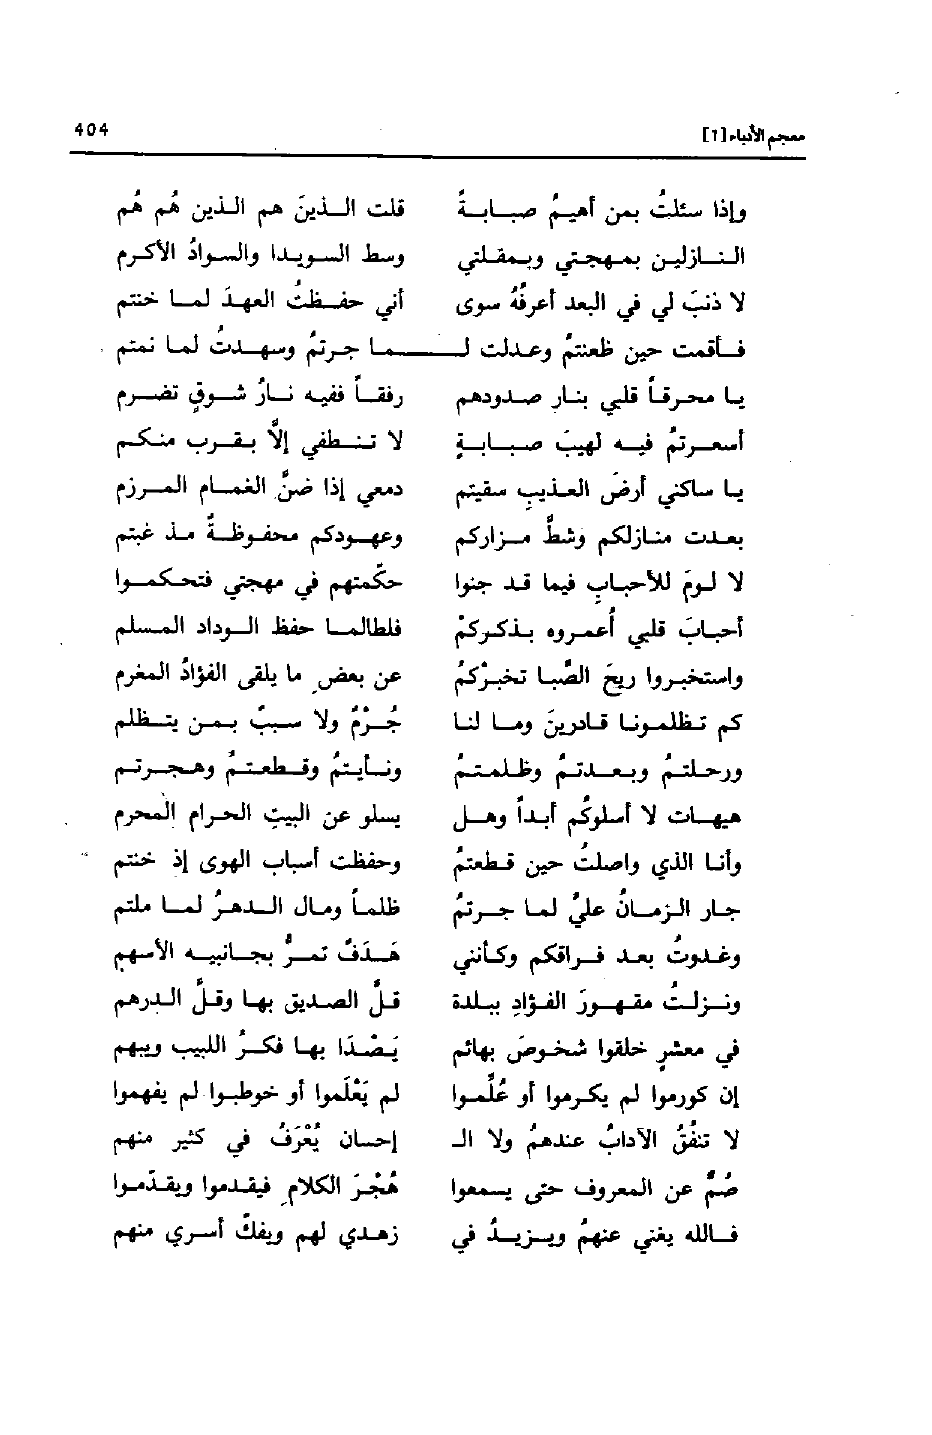 معجم الأدباء [٦] 404
وإذا سئلتُ بمن أهيمُ صبابةً قلت الذينَ هم الذين هُم هُم
النازلين بمهجتي وبمقلتي وسط السويدا والسوادُ الأكرم
لا ذنبَ لي في البعد أعرفُهُ سوى أني حفظتُ العهدَ لما خنتم
فأقمت حين ظعنتمُ وعدلت لـما جرتمُ وسهدتُ لما نمتم
يا محرقاً قلبي بنار صدودهم رفقاً ففيه نارُ شوقٍ تضرم
أسعرتمُ فيه لهيبَ صبابةٍ لا تنطفي إلَّا بقرب منكم
يا ساكني أرضَ العذيبِ سقيتم دمعي إذا ضنَّ الغمام المرزم
بعدت منازلكم وشطَّ مزاركم وعهودكم محفوظةٌ مذ غبتم
لا لومَ للأحبابِ فيما قد جنوا حكّمتهم في مهجتي فتحكموا
أحبابَ قلبي أعمروه بذكركُمْ فلطالما حفظ الوداد المسلم
واستخبروا ريحَ الصَّبا تخبرْكمُ عن بعضِ ما يلقى الفؤادُ المغرم
كم تظلمونا قادرينَ وما لنا جُرْمٌ ولا سببٌ بمن يتظلم
ورحلتمُ وبعدتمُ وظلمتمُ ونأيتمُ وقطعتمُ وهجرتم
هيهات لا أسلوكُم أبداً وهل يسلو عن البيتِ الحرام المحرم
وأنا الذي واصلتُ حين قطعتمُ وحفظت أسباب الهوى إذ خنتم
جار الزمانُ عليَّ لما جرتمُ ظلماً ومال الدهرُ لما ملتم
وغدوتُ بعد فراقكم وكأنني هَدَفٌ تمرُّ بجانبيه الأسهم
ونزلتُ مقهورَ الفؤادِ ببلدة قلَّ الصديق بها وقلَّ الدرهم
في معشرٍ خلقوا شخوصَ بهائم يَصْدَا بها فكرُ اللبيب ويبهم
إن كورموا لم يكرموا أو عُلِّموا لم يَعْلَموا أو خوطبوا لم يفهموا
لا تنفُقُ الآدابُ عندهمُ ولا الـ إحسان يُعْرَفُ في كثير منهم
صُمٌّ عن المعروف حتى يسمعوا هُجْرَ الكلامِ فيقدموا ويقدّموا
فالله يغني عنهمُ ويزيدُ في زهدي لهم ويفكّ أسري منهم